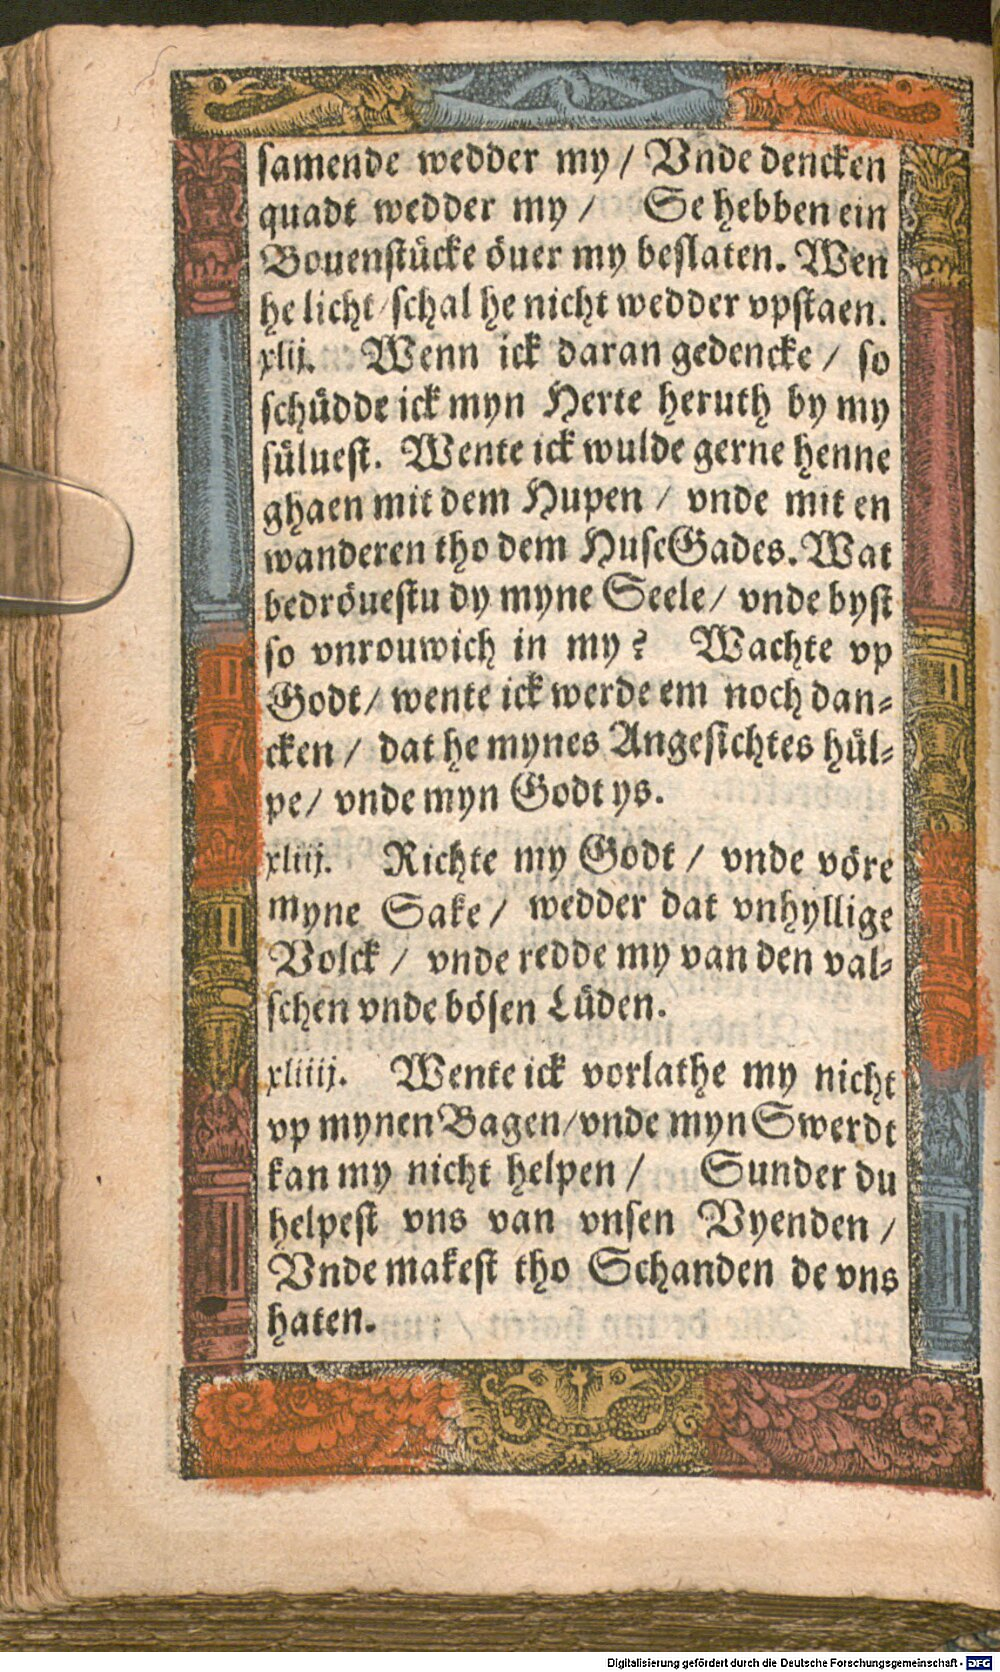 samende wedder my / Vnde dencken
quadt wedder my / Se hebben ein
Bouenstücke öuer my beslaten. Wen
he licht / schal he nicht wedder vpstaen.
xlij. Wenn ick daran gedencke / so
schüdde ick myn Herte heruth by my
süluest. Wente ick wulde gerne henne
ghaen mit dem Hupen / vnde mit en
wanderen tho dem Huse Gades. Wat
bedröuestu dy myne Seele / vnde byst
so vnrouwich in my? Wachte vp
Godt / wente ick werde em noch dan-
cken / dat he mynes Angesichtes hül-
pe / vnde myn Godt ys.
xliij. Richte my Godt / vnde vöre
myne Sake / wedder dat vnhyllige
Volck / vnde redde my van den val-
schen vnde bösen Lüden.
xliiij. Wente ick vorlathe my nicht
vp mynen Bagen / vnde myn Swerdt
kan my nicht helpen / Sunder du
helpest vns van vnsen Vyenden /
Vnde makest tho Schanden de vns
haten.
Digitalisierung gefördert durch die Deutsche Forschungsgemeinschaft - DFG